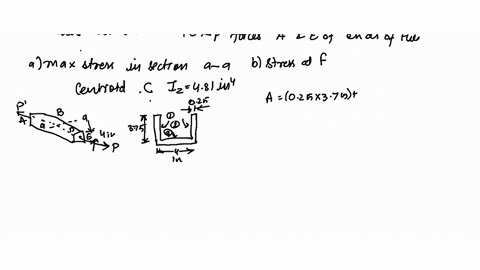 forces A & E of ends of the
a) max stress in section a-a b) stress at F
Centroid C I_z = 4.81 in⁴
0.25
A = (0.25 × 3.75) +
P' B a
A a D E 4in P
3.75 ① ② ③
4
in